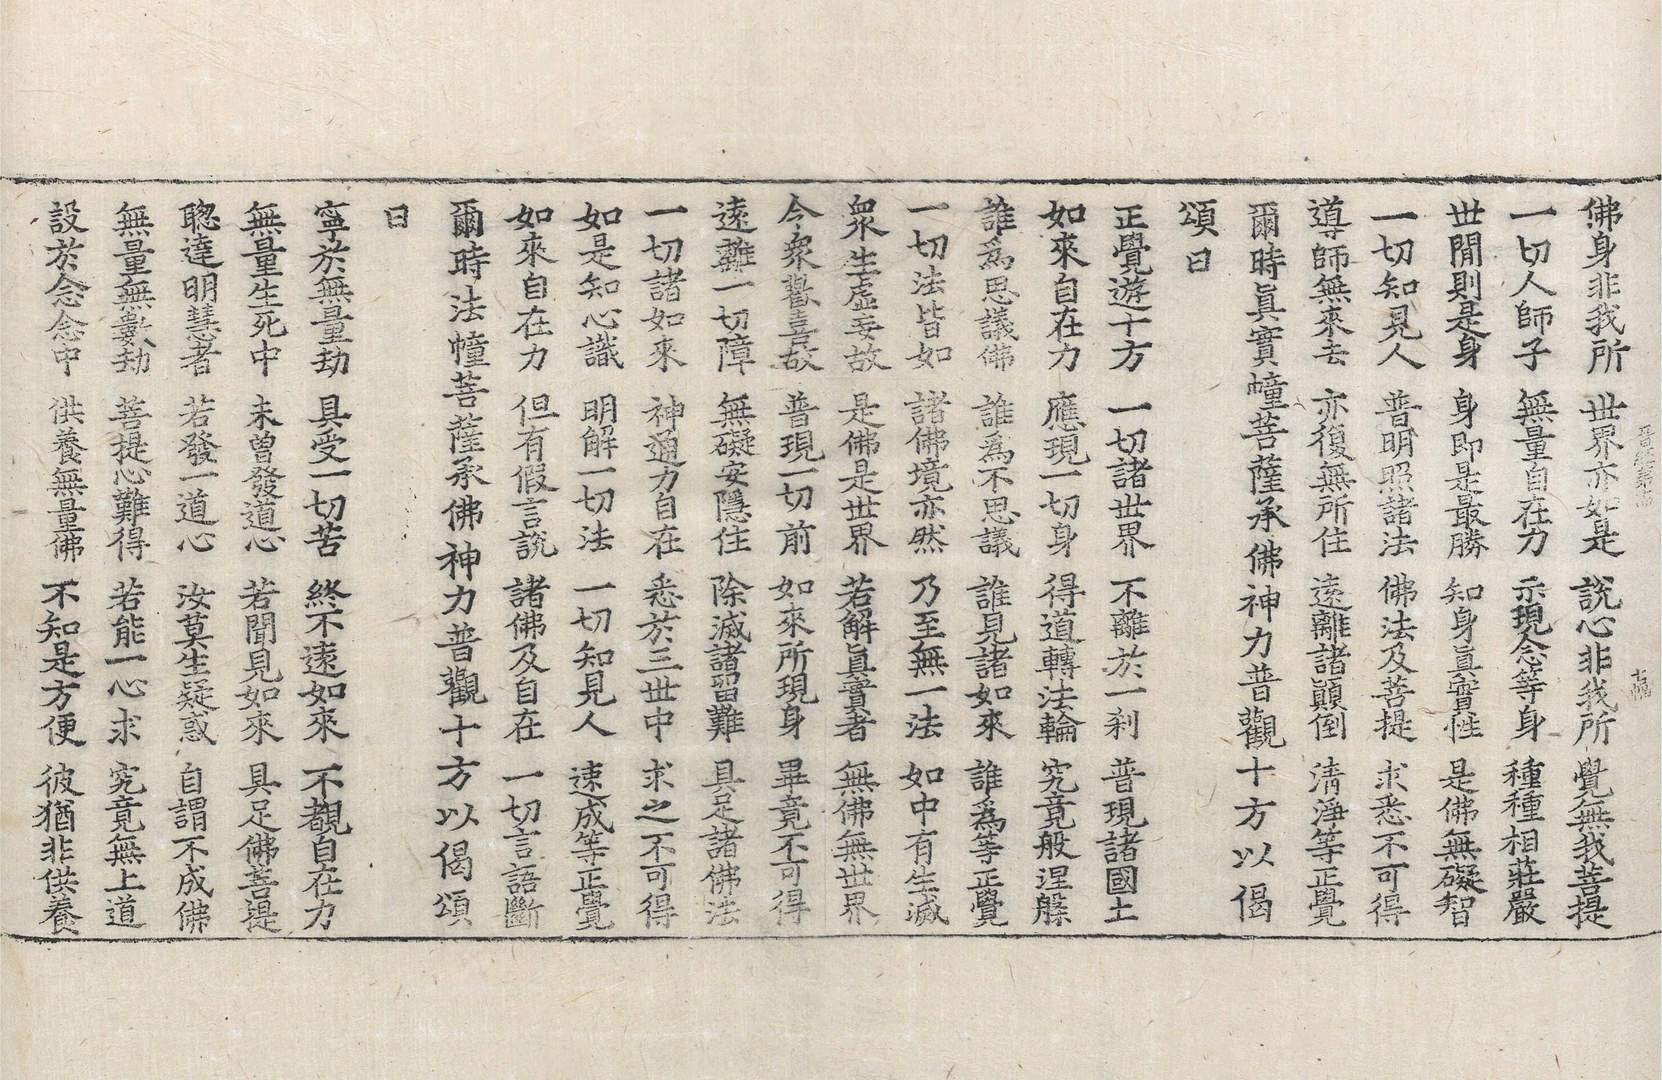 佛身非我所 世界亦如是 說心非我所 覺無我菩提
一切人師子 無量自在力 示現念等身 種種相莊嚴
世閒則是身 身即是最勝 知身眞實性 是佛無礙智
一切知見人 普明照諸法 佛法及菩提 求悉不可得
導師無來去 亦復無所住 遠離諸顚倒 清淨等正覺
爾時眞實幢菩薩承佛神力普觀十方以偈
頌曰
正覺遊十方 一切諸世界 不離於一刹 普現諸國土
如來自在力 應現一切身 得道轉法輪 究竟般涅槃
誰爲思議佛 誰爲不思議 誰見諸如來 誰爲等正覺
一切法皆如 諸佛境亦然 乃至無一法 如中有生滅
衆生虛妄故 是佛是世界 若解眞實者 無佛無世界
今衆歡喜故 普現一切前 如來所現身 畢竟不可得
遠離一切障 無礙安隱住 除滅諸留難 具足諸佛法
一切諸如來 神通力自在 悉於三世中 求之不可得
如是知心識 明解一切法 一切知見人 速成等正覺
如來自在力 但有假言說 諸佛及自在 一切言語斷
爾時法幢菩薩承佛神力普觀十方以偈頌
曰
寧於無量劫 具受一切苦 終不遠如來 不覩自在力
無量生死中 未曾發道心 若聞見如來 具足佛菩提
聦達明慧者 若發一道心 汝莫生疑惑 自謂不成佛
無量無數劫 菩提心難得 若能一心求 究竟無上道
設於念念中 供養無量佛 不知是方便 彼猶非供養